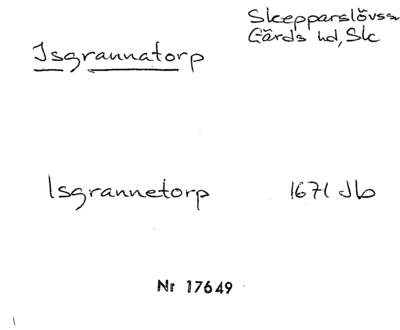 Skepparslövs sn
Gärds hd, Sk
Isgrannatorp
Isgrannetorp 1671 Jb
Nr 17649